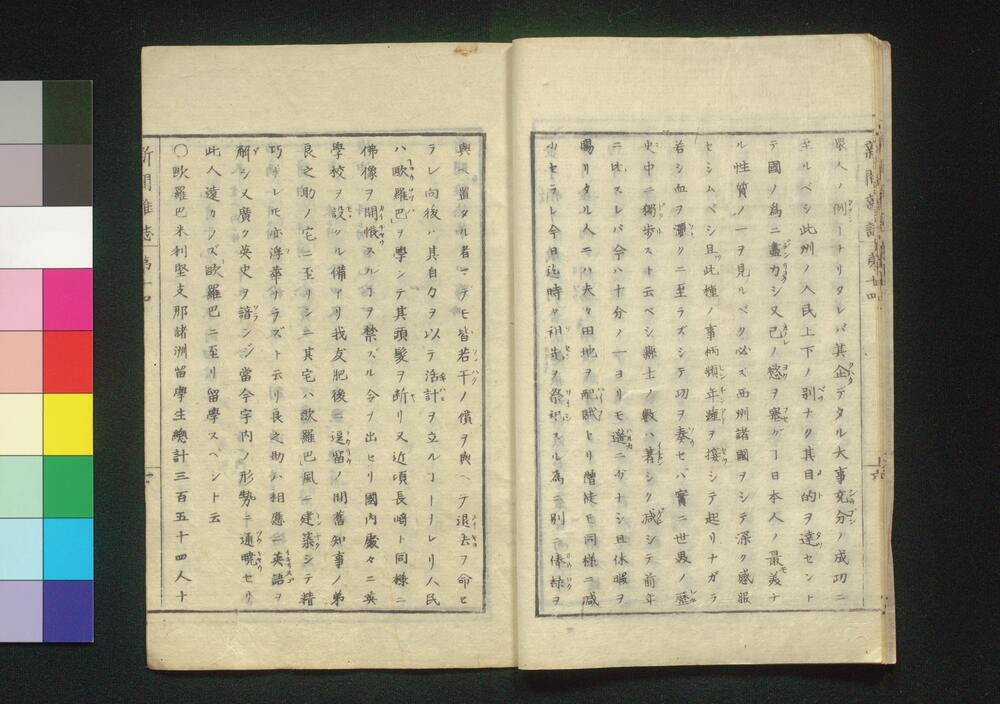 新聞雜誌 第十四
衆人ノ例トナリタレバ其企テタル大事充分ノ成功ニ
至ルベシ此州ノ人民上下ノ別ナク其目的ヲ達セント
テ國ノ為ニ盡力シ又己ノ惑ヲ塞グヿ日本人ノ最美ナ
ル性質ノ一ヲ見ルベク必ズ西州諸國ヲシテ深ク感服
セシムベシ且ツ此種ノ事柄頻年踵ヲ接シテ起リナガラ
若シ血ヲ濺クニ至ラズシテ功ヲ奏セバ實ニ世界ノ歷
史中ニ獨歩スト云ベシ縣士ノ數ハ著シク減シテ前年
ニ比スレバ今ハ十分ノ一ヨリモ遙ニ少ナシ且休暇ヲ
賜リタル人ニハ夫々田地ヲ配賦セリ僧徒モ同様ニ減
少セラレ今日迄時々祖先ヲ祭祀スル為ニ別ニ俸禄ヲ
與ヘ置タル者マデモ皆若干ノ償ヲ與ヘテ退去ヲ命セ
ラレ向後ハ其自力ヲ以テ活計ヲ立ルヿトナレリ人民
ハ歐羅巴ヲ學ンテ其頭髮ヲ斷リ又近頃長崎ト同様ニ
佛像ヲ開帳スルヿヲ禁ズル令ヲ出セリ國内處々ニ英
學校ヲ設クル備アリ我友肥後ニ逗留ノ間舊知事ノ弟
良之助ノ宅ニ至リシニ其宅ハ歐羅巴風ニ建築シテ精
巧ナレ𪜈亦浮華ナラズト云リ良之助ハ相應ニ英語ヲ
解シ又廣ク英史ヲ諳ンジ當今宇内ノ形勢ニ通曉セリ
此人遠カラズ歐羅巴ニ至リ留學スベシト云
○歐羅巴米利堅支那諸洲留學生總計三百五十四人十
新聞雜誌 第十四